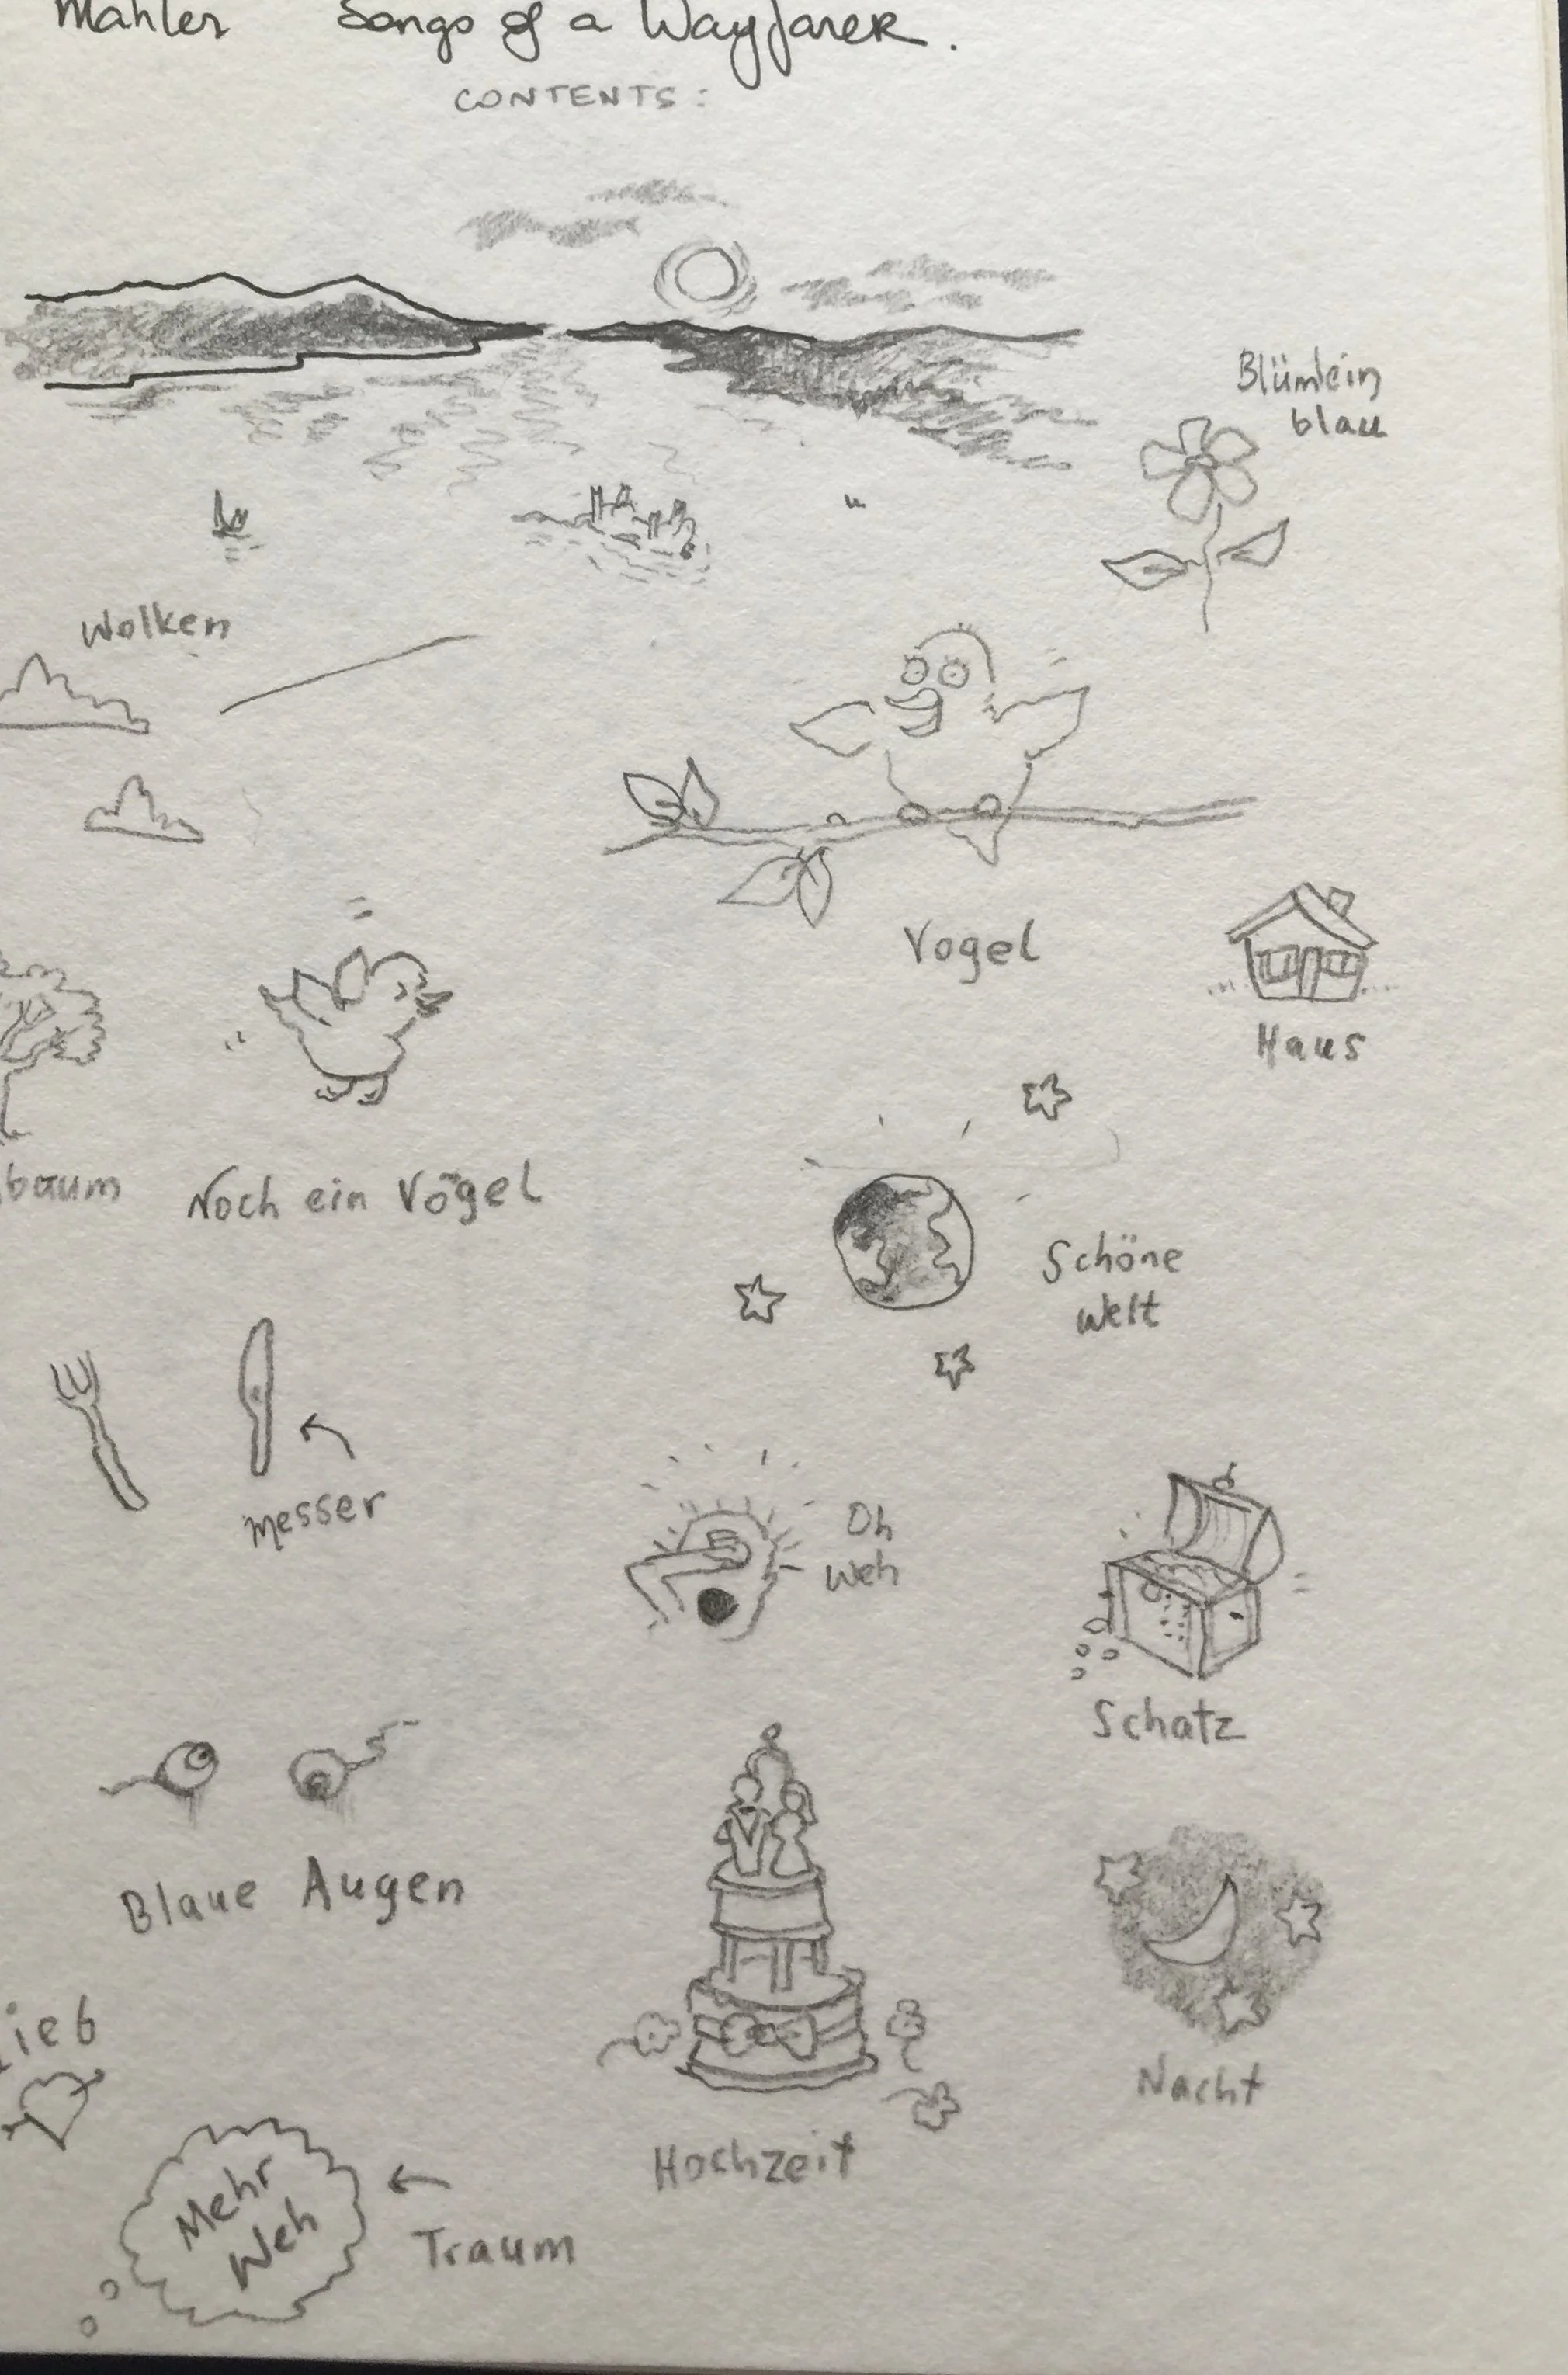 Mahler Songs of a Wayfarer.
CONTENTS:
Blümlein
blau
Wolken
Vogel
Haus
baum
Noch ein Vögel
Schöne
Welt
Messer
Oh
Weh
Schatz
Blaue Augen
Nacht
ieb
Hochzeit
Mehr
Weh
Traum